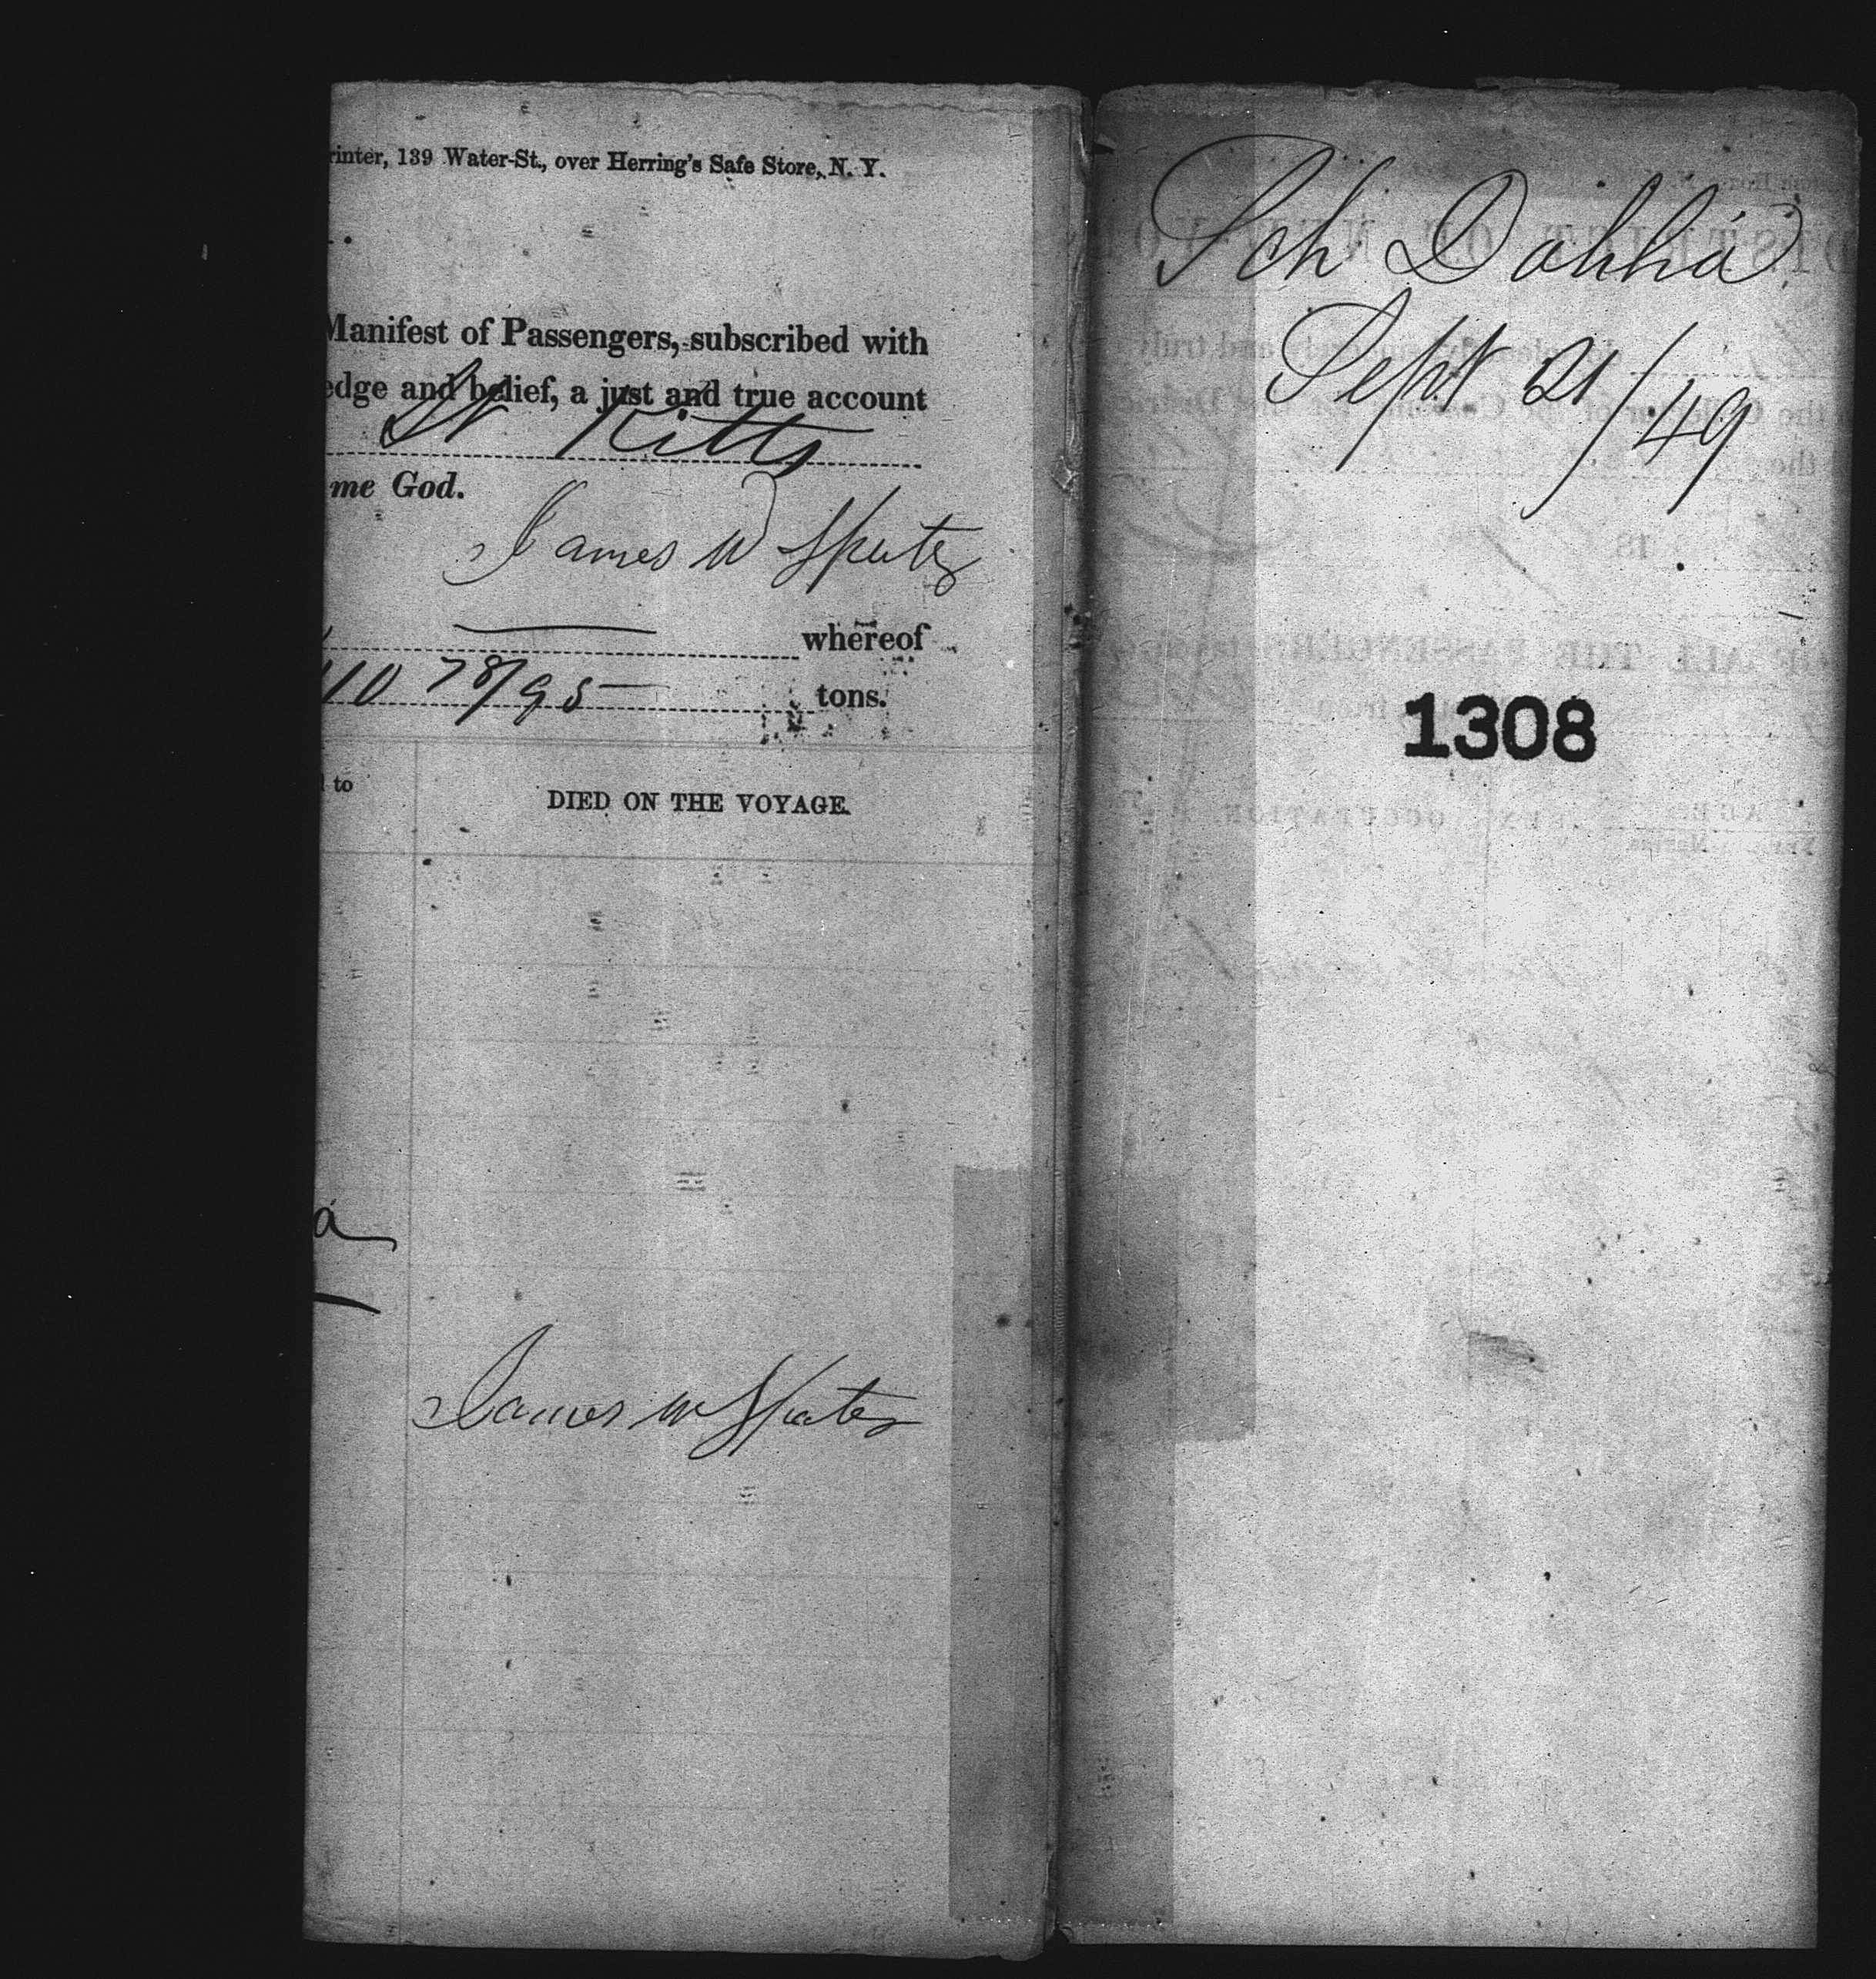 rinter, 139 Water-St., over Herring's Safe Store, N. Y.
Manifest of Passengers, subscribed with
edge and belief, a just and true account
St Kitts
me God.
James W
whereof
110 78/95 tons.
d to
DIED ON THE VOYAGE.
a
James W
Sch Dahlia
Sept 21/49
1308